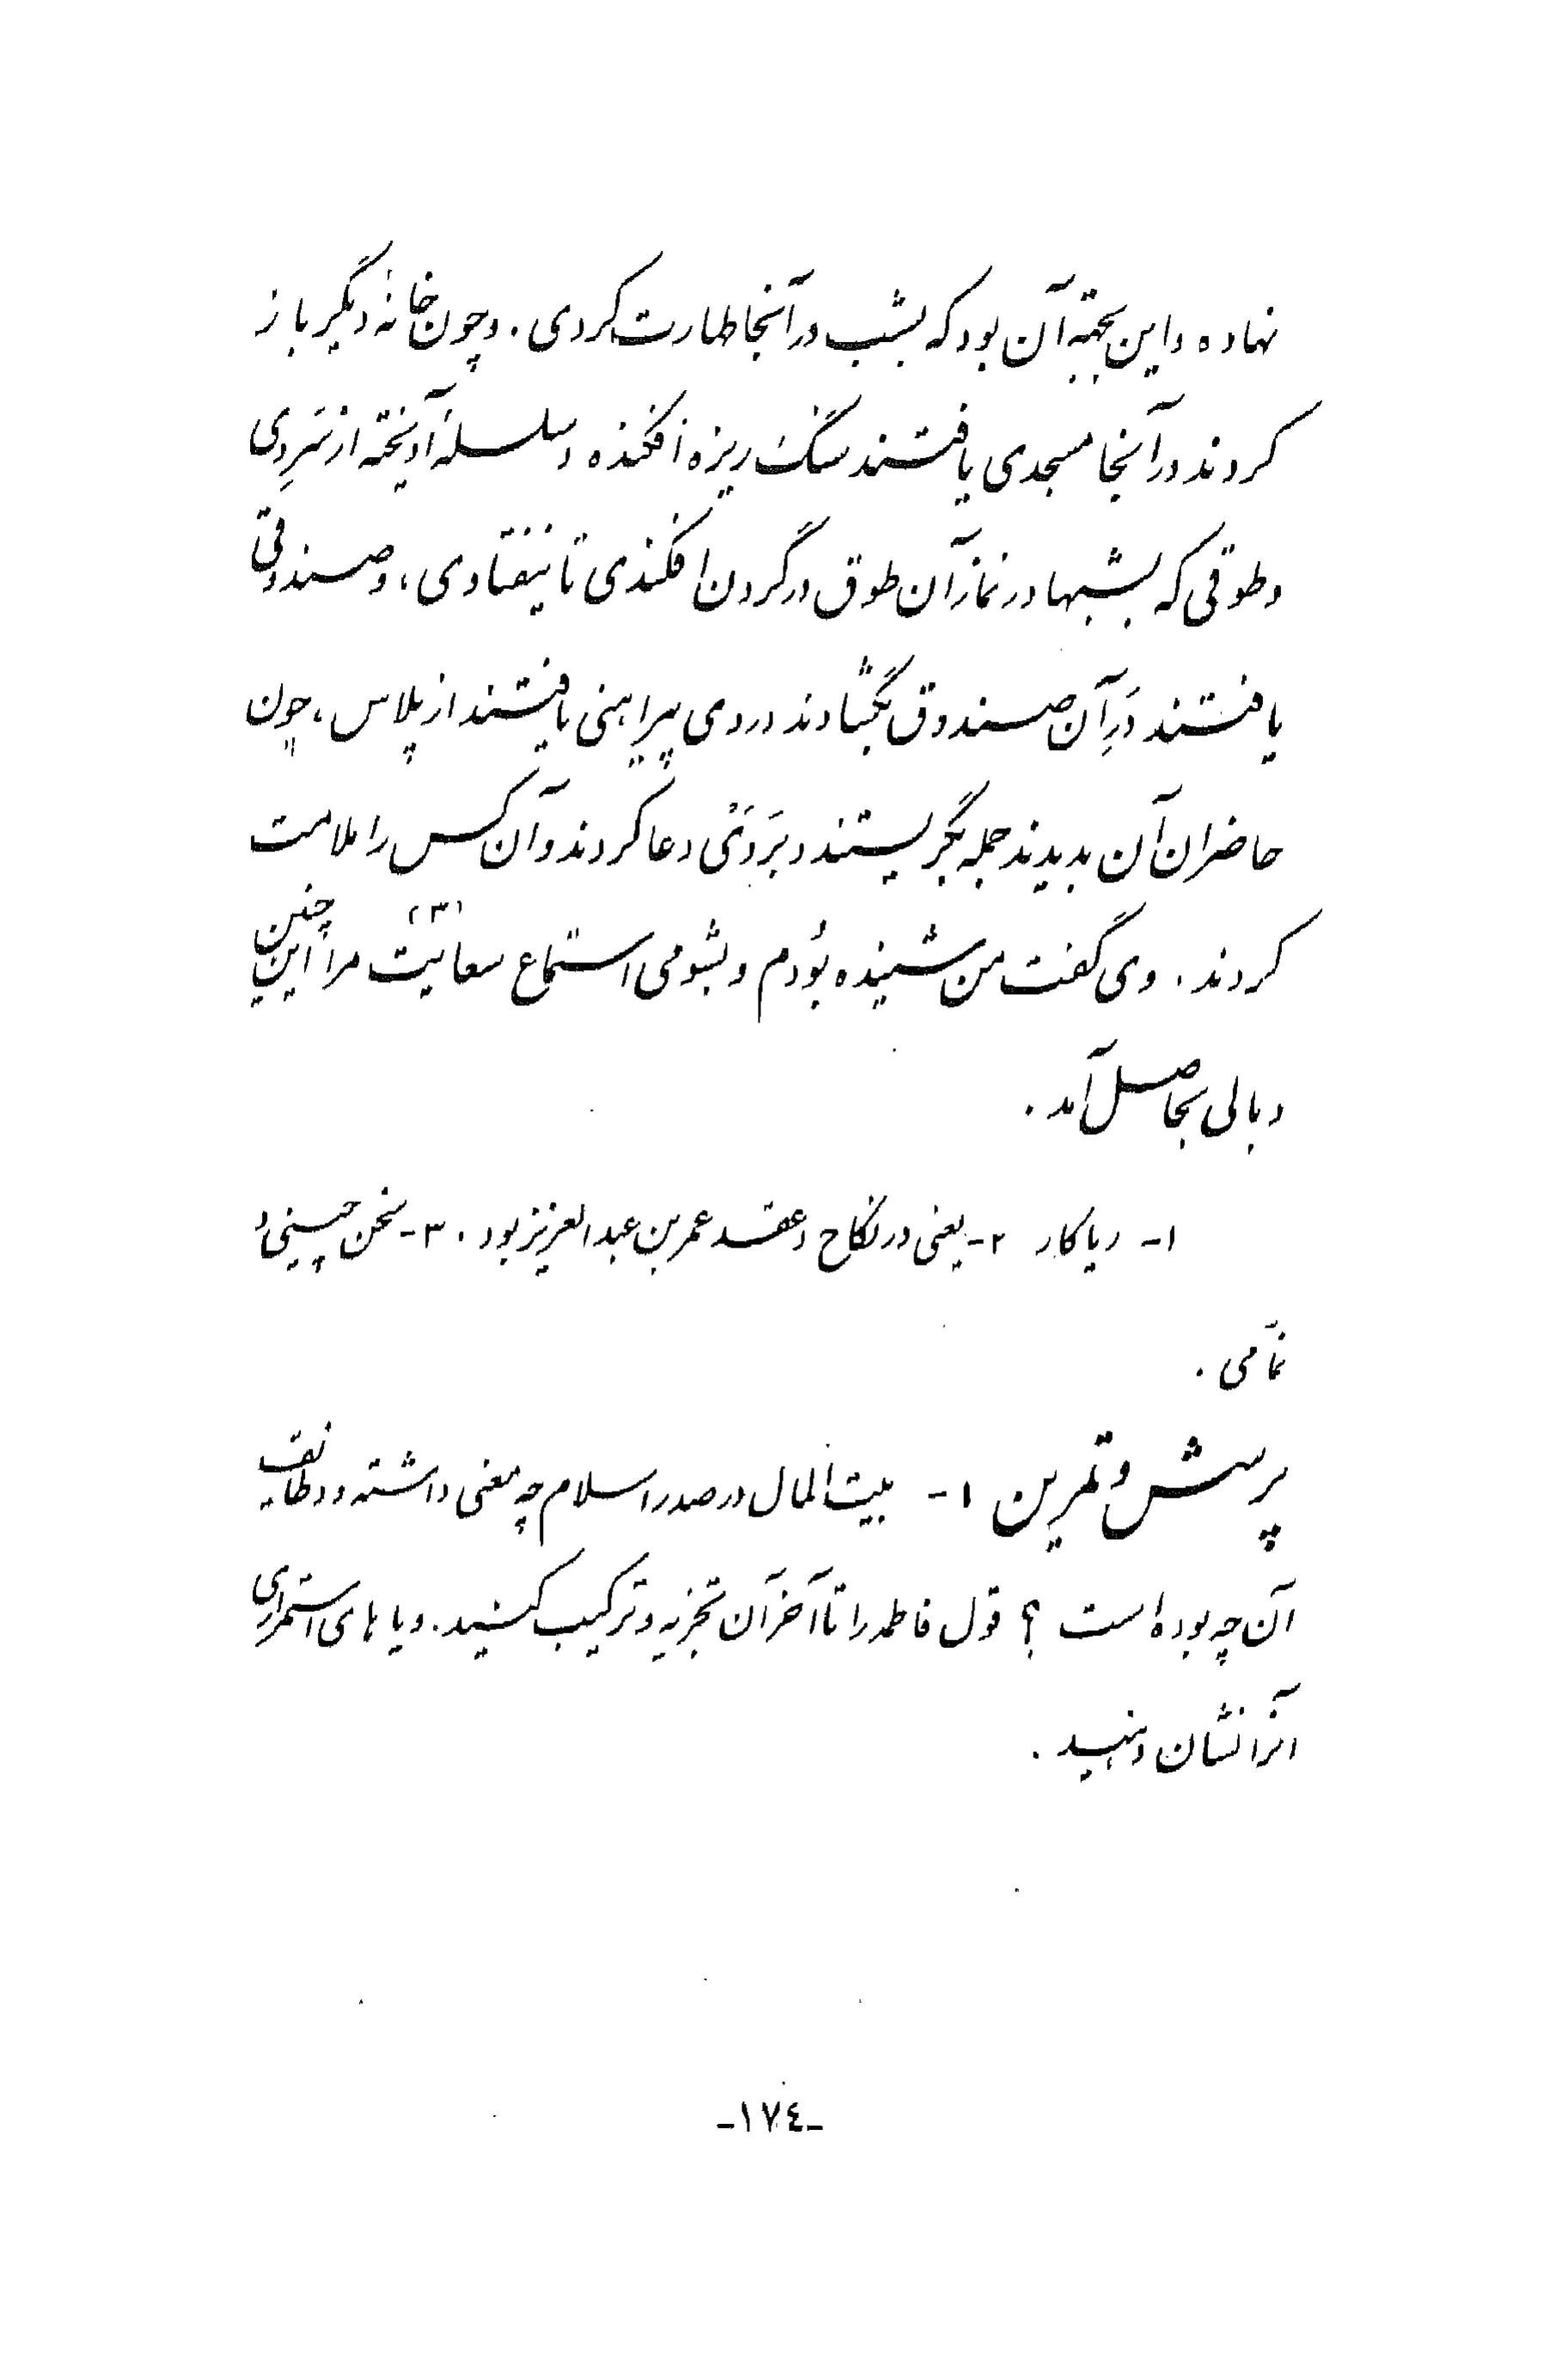 نهاده و این بجهة آن بود که بشب در آنجا طهارت کردی . و چون خانهٔ دیگر باز
کردند در آنجا مسجدی یافتند سنگ ریزه افکنده و سلسلهٔ آویخته از سَرِ وی
و طوقی که بشبها در نماز آن طوق در گردن افکندی تا نیفتادی ، و صندوقی
یافتند دَرِ آن صندوق بگشادند در وی پیراهنی یافتند از پلاس ، چون
حاضران آن بدیدند جمله بگریستند و بَر وَیْ دعا کردند و آن کس را ملامت
کردند . وی گفت من شنیده بُودم و بشومی استماع سعایت (۳) مرا این چنین
وبالی بحاصل آمد .
۱- ریاکار ۲- یعنی در نکاح و عقد عمر بن عبدالعزیز بود . ۳- سخن چینی و
نمّامی .
پرسش و تمرین ۱- بیت المال در صدر اسلام چه معنی داشته و وظائف
آن چه بوده است ؟ قول فاطمه را تا آخر آن تجزیه و ترکیب کنید . و یاهای استمراری
آنرا نشان دهید .
-۱۷٤-